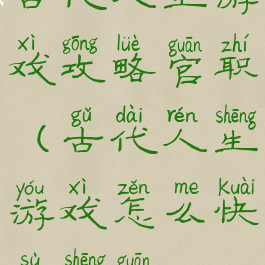 xì gōng lüè guān zhí
戏攻略官职
gǔ dài rén shēng
(古代人生
yóu xì zěn me kuài
游戏怎么快
sù shēng guān